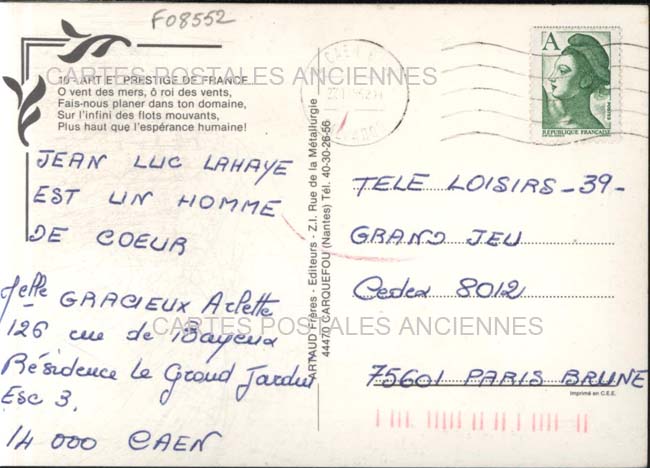 F08552
10 - ART ET PRESTIGE DE FRANCE...
O vent des mers, ô roi des vents,
Fais-nous planer dans ton domaine,
Sur l'infini des flots mouvants,
Plus haut que l'espérance humaine!
CARTES POSTALES ANCIENNES
JEAN LUC LAHAYE
EST UN HOMME
DE COEUR
Melle GRACIEUX Arlette
126 rue de Bayeux
Résidence Le Grand Jardin
Esc 3.
14 000 CAEN
CARTES POSTALES ANCIENNES
ARTAUD Frères - Editeurs - Z.I. Rue de la Métallurgie
44470 CARQUEFOU (Nantes) Tél. 40-30-26-56
A
REPUBLIQUE FRANÇAISE
TELE LOISIRS -39-
GRAND JEU
Cedex 8012
75601 PARIS BRUNE
Imprimé en C.E.E.